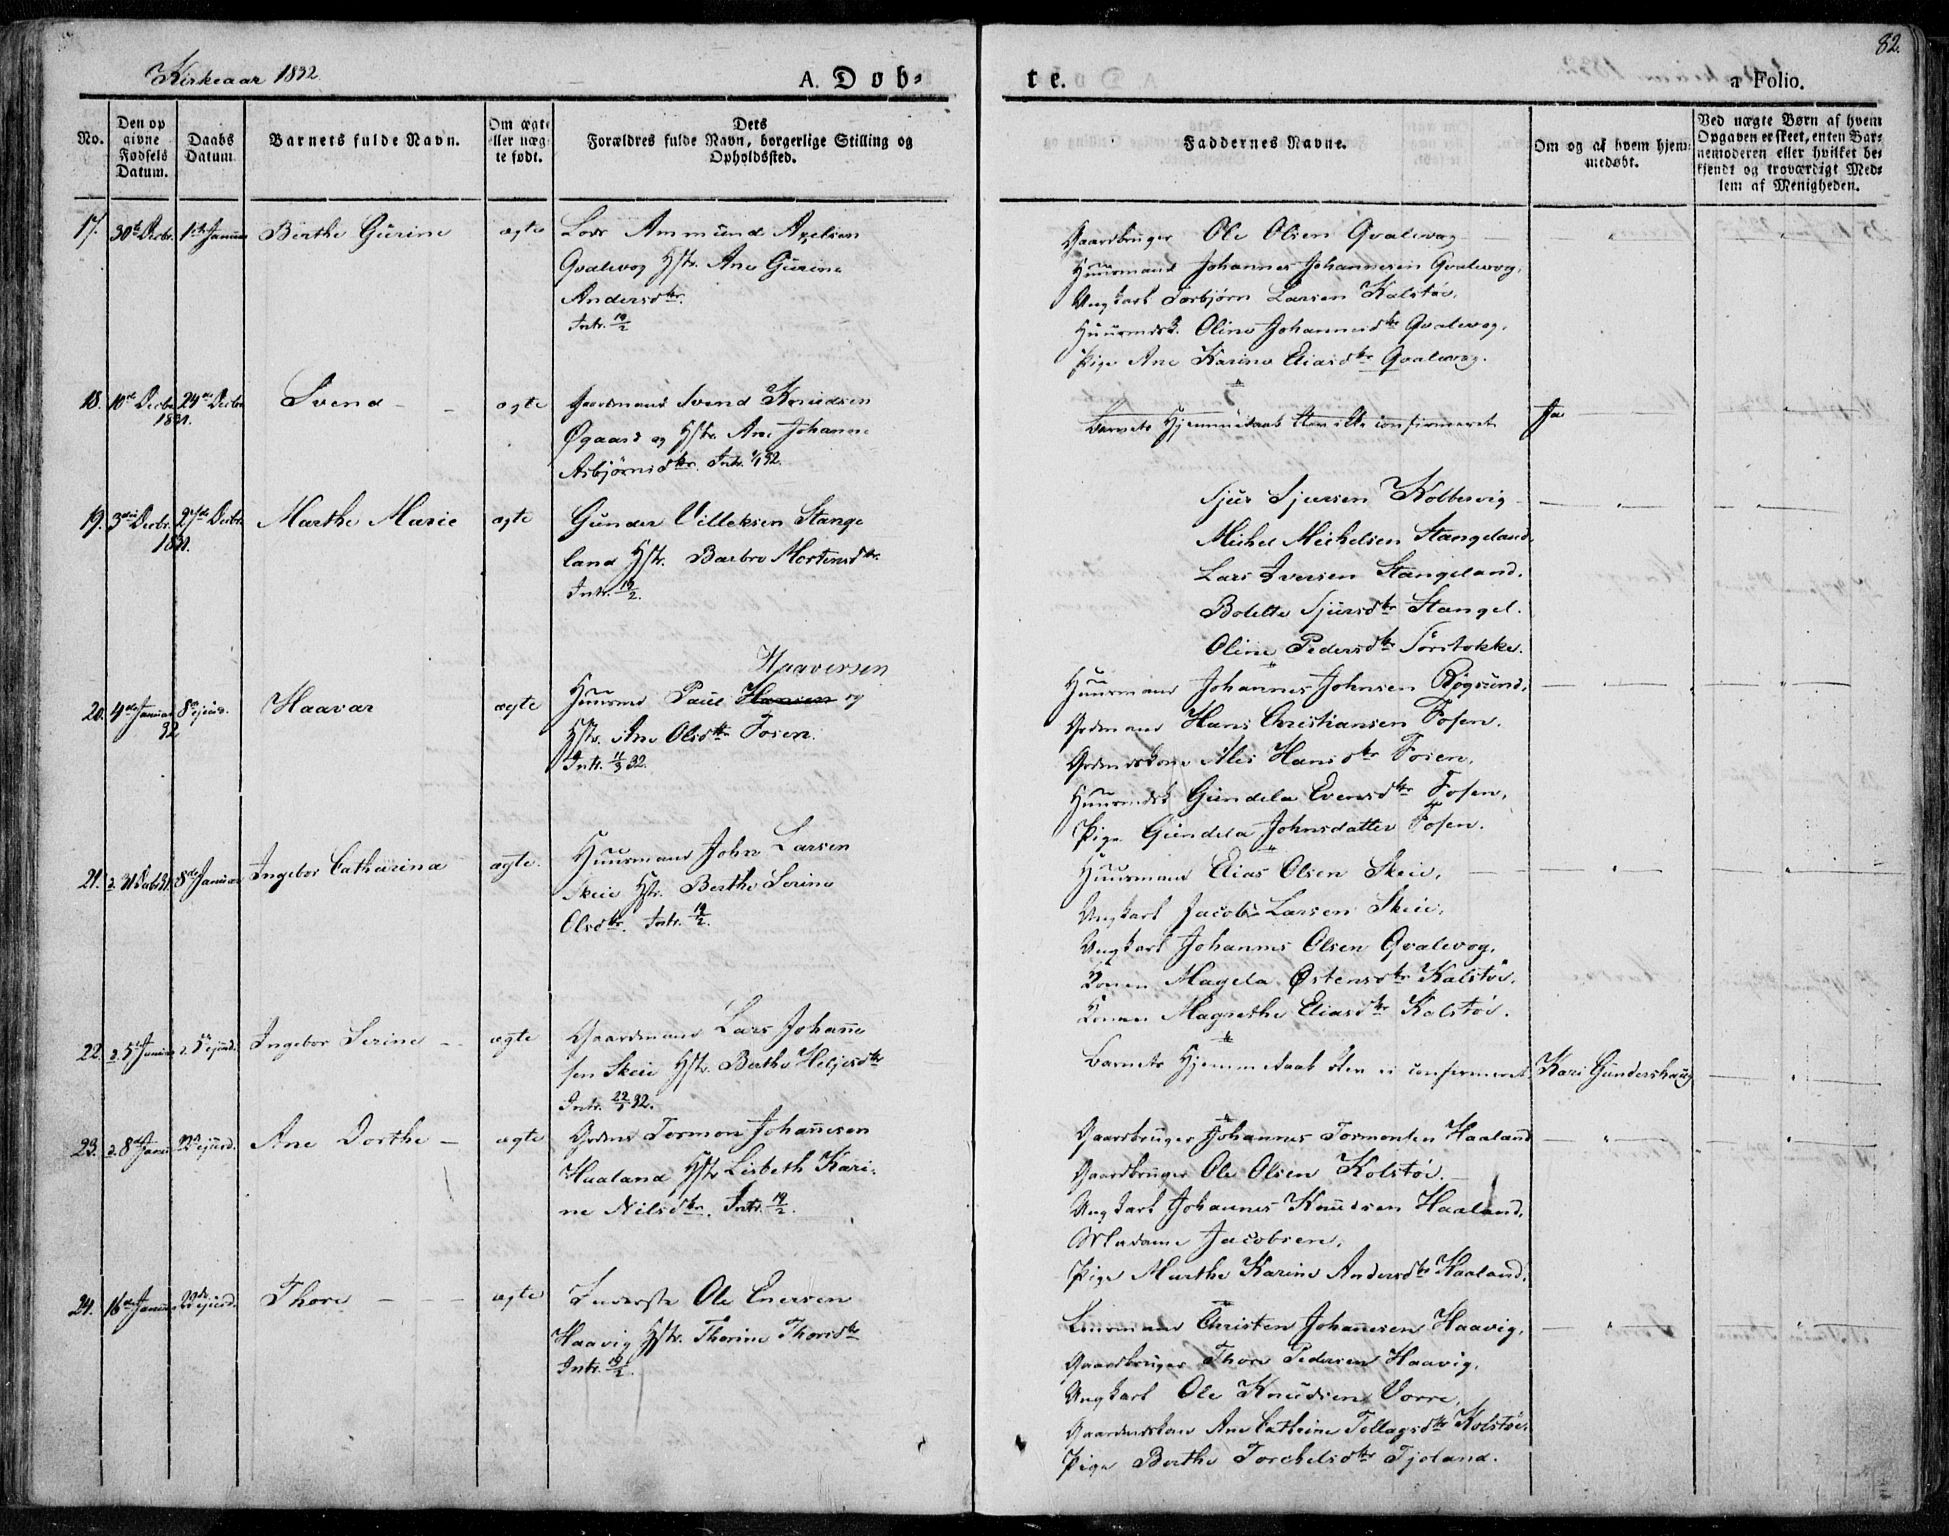 82.
Kirkeaar 1832.
A. Døb-
te.
a Folio.
No.
Den op
givne
Fødsels
Datum.
Daabs
Datum.
Barnets fulde Navn.
Om ægte
eller uæg-
te født.
Dets
Forældres fulde Navn, borgerlige Stilling og
Opholdssted.
Faddernes Navne.
Om og af hvem hjem-
medøbt.
Ved uægte Børn af hvem
Opgaven er skeet, enten Bar-
nemoderen eller hvilket be-
kjendt og troværdigt Med-
lem af Menigheden.
17. 30te Decbr. 1ste Januar Berthe Gurine ægte
Ammund Axelsen
Qvalevog Hstr. Ane Gurine
Andersdtr.
Intr. 19/2
Gaardbruger Ole Olsen Qvalevog
Huusmand Johannes Johannesen Qvalevog.
Ungkarl Torbjørn Larsen Kalstøe.
Huusmdsk. Oline Johannisdtr Qvalevog.
Pige Ane Karine Eliasdtr Qvalevog.
18. 10de Decbr. 24de Decbr 1831. Svend ægte
Gaardmand Svend Knudsen
Øgaard og Hstr. Ane Johanne
Asbjørnsdtr. Intr. 1/1 32.
Barnets Hjemmedaab blev confirmeret
Ja
19. 3die Decbr. 27de Decbr 1831. Marthe Marie ægte
Gunder Villeksen Stange
land Hstr. Barbro Mortensdtr.
Intr. 19/2.
Sjur Sjursen Kolbervig
Michel Michelsen Stangeland.
Lars Iversen Stangeland.
Bolette Sjursdtr Stangel.
Oline Pedersdtr Sørstokke.
20. 4de Januar 32 8de ejusd. Haavar ægte
Haaversen
Huusmd Paul Hansen og
Hstr. Ane Olsdtr Fosen.
Intr. 11/3 32.
Huusmand Johannes Johnsen Røgsund.
Grdmand Hans Christiansen Fosen.
Grdmdskone Alis Hansdtr Fosen.
Huusmdsk Gundela Evensdtr Fosen.
Pige Gundela Johnsdatter Fosen.
21. 8de Januar Ingebor Catharina ægte.
Huusmand John Larsen
Skeie Hstr. Berthe Serine
Olsdtr. Intr. 19/2.
Huusmand Elias Olsen Skeie.
Ungkarl Jacob Larsen Skeie.
Ungkarl Johannes Olsen Qvalevog.
Konen Magela Østensdtr Kalstøe.
Konen Magrethe Eliasdtr Kolstøe.
22. d. 5te Januar d. ejusd. Ingebor Serine ægte
Gaardmand Lars Johanne
sen Skeie Hstr. Berthe Heljesdtr
Intr. 22/1 32.
Barnets Hjemmedaab blev confirmeret.
Kari Gundershaug
23. d. 8de Januar 22de ejusd. Ane Dorthe ægte
Grdmd Tormon Johannesen
Haaland Hstr Lisbeth Kari-
ne Nilsdtr. Intr. 19/2.
Gaardbruger Johannes Tormonsen Haaland
Gaardbruger Ole Olsen Kolstøe.
Ungkarl Johannes Knudsen Haaland.
Madame Jacobsen.
Pige Marthe Karine Andersdtr Haaland.
24. 16de Januar 22de ejusd. Thore ægte
Inderste Ole Enersen
Haavig Hstr. Thorine Thorisdtr
Intr. 19/2.
Christen Johannesen Haavig.
Gaardbruger Thore Pedersen Haavig.
Ungkarl Ole Knudsen Vorre
Gaardmdskone Ane Cathrine Tollagsdtr Kolstøe.
Pige Berthe Torchelsdtr Tjoland.